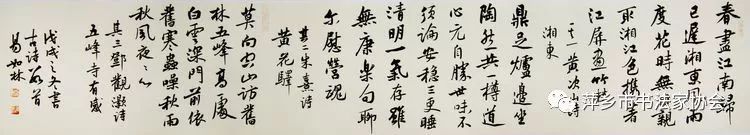 春盡江南歸
已遲湘東風雨
度花時無親
取湘江色
江屏画竹枝
其一黄次山詩
湘東
鼎足爐邊坐
陶然共一樽道
心元自勝世味不
須論安穩三更睡
清明一氣存雖
無康樂句聊
尔慰營魂
其二朱熹詩
黄花驛
莫向空山訪舊
林五峰高處
白雲深門前依
舊寒蟲噪秋雨
秋風夜夜心
其三鄧觀澂詩
五峰寺有感
戊戌之冬書
古詩三首
易如林
萍乡市书法家协会